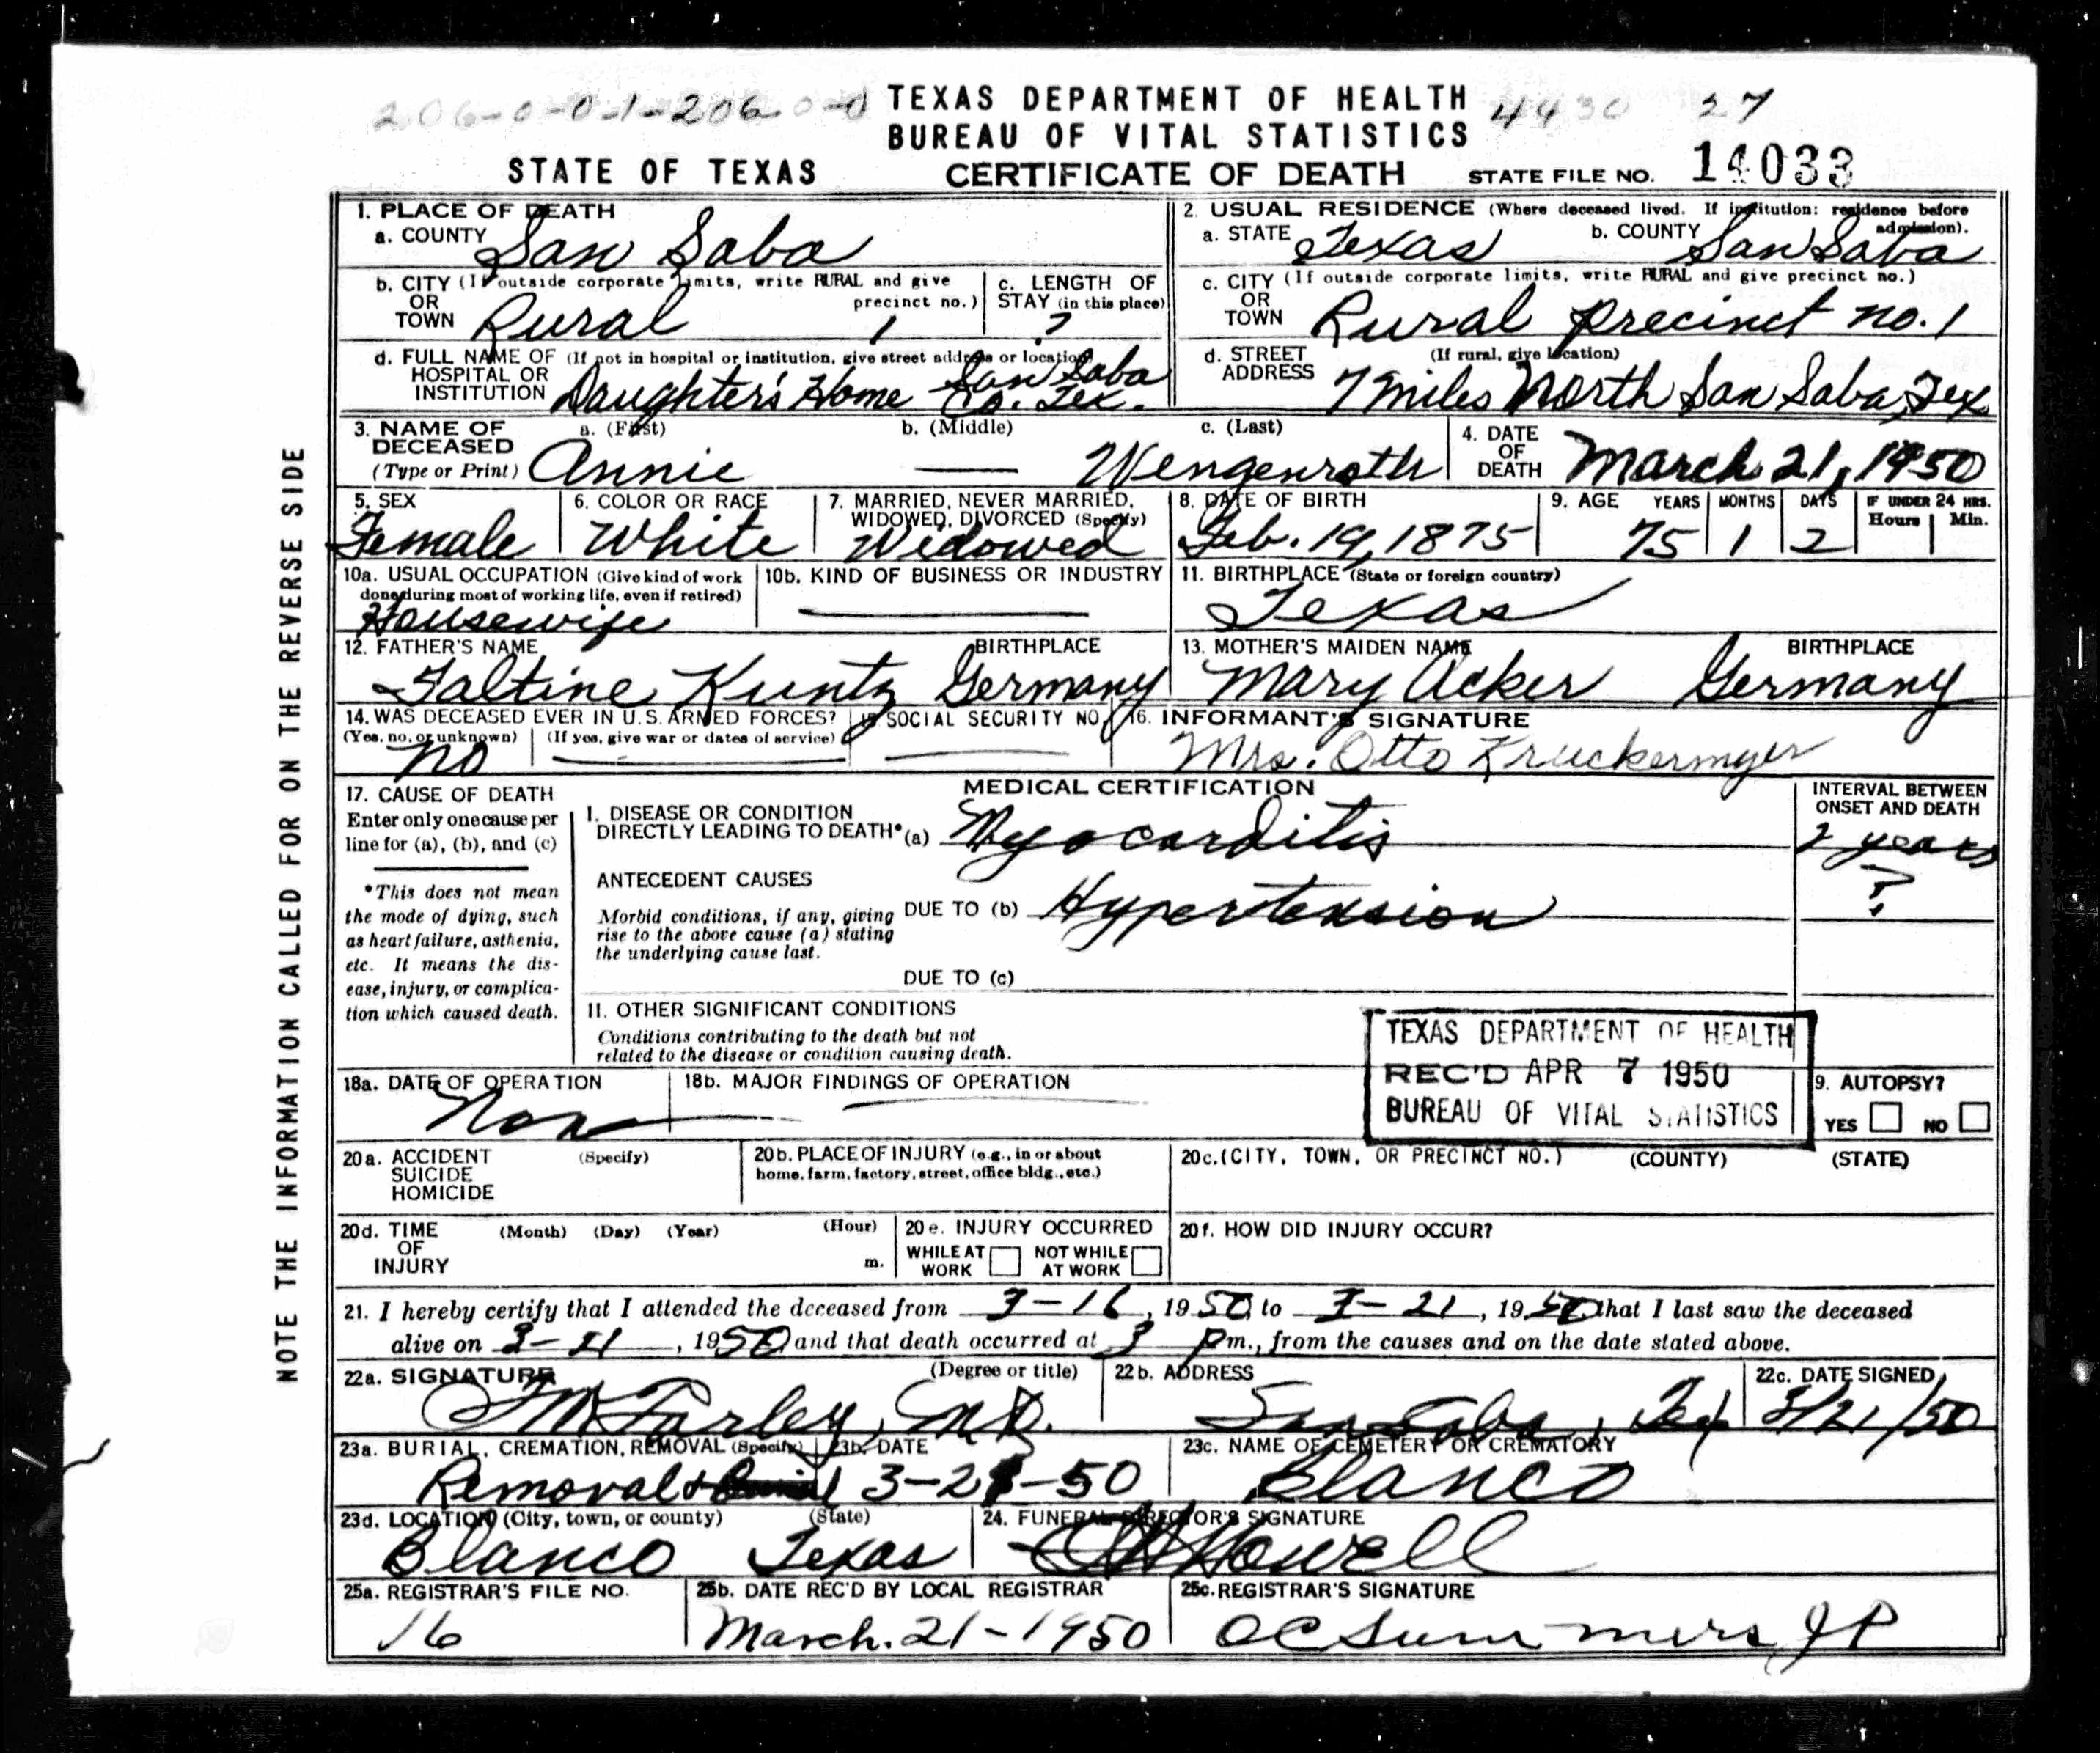 206-0-0-1-206-0-0 TEXAS DEPARTMENT OF HEALTH 4430 27
BUREAU OF VITAL STATISTICS
STATE OF TEXAS CERTIFICATE OF DEATH STATE FILE NO. 14033
NOTE THE INFORMATION CALLED FOR ON THE REVERSE SIDE
1. PLACE OF DEATH
a. COUNTY San Saba
2. USUAL RESIDENCE (Where deceased lived. If institution: residence before admission).
a. STATE Texas b. COUNTY San Saba
b. CITY (If outside corporate limits, write RURAL and give precinct no.)
OR
TOWN Rural 1
c. LENGTH OF
STAY (in this place)
?
c. CITY (If outside corporate limits, write RURAL and give precinct no.)
OR
TOWN Rural precinct no. 1
d. FULL NAME OF (If not in hospital or institution, give street address or location)
HOSPITAL OR
INSTITUTION Daughter's Home San Saba Co. Tex.
d. STREET (If rural, give location)
ADDRESS 7 miles North San Saba, Tex
3. NAME OF DECEASED (Type or Print)
a. (First) b. (Middle) c. (Last)
Annie — Wengenroth
4. DATE OF DEATH March 21, 1950
5. SEX
Female
6. COLOR OR RACE
White
7. MARRIED, NEVER MARRIED, WIDOWED, DIVORCED (Specify)
Widowed
8. DATE OF BIRTH
Feb. 19, 1875
9. AGE YEARS MONTHS DAYS IF UNDER 24 HRS. Hours Min.
75 1 2
10a. USUAL OCCUPATION (Give kind of work
done during most of working life, even if retired)
Housewife
10b. KIND OF BUSINESS OR INDUSTRY
11. BIRTHPLACE (State or foreign country)
Texas
12. FATHER'S NAME BIRTHPLACE
Faltine Kuntz Germany
13. MOTHER'S MAIDEN NAME BIRTHPLACE
Mary Acker Germany
14. WAS DECEASED EVER IN U.S. ARMED FORCES?
(Yes, no, or unknown) (If yes, give war or dates of service)
no
SOCIAL SECURITY NO.
16. INFORMANT'S SIGNATURE
Mrs. Otto Kruckermyer
MEDICAL CERTIFICATION
17. CAUSE OF DEATH
Enter only one cause per
line for (a), (b), and (c)
*This does not mean
the mode of dying, such
as heart failure, asthenia,
etc. It means the dis-
ease, injury, or complica-
tion which caused death.
I. DISEASE OR CONDITION
DIRECTLY LEADING TO DEATH* (a) Myocarditis
INTERVAL BETWEEN
ONSET AND DEATH
2 years
ANTECEDENT CAUSES
Morbid conditions, if any, giving
rise to the above cause (a) stating
the underlying cause last.
DUE TO (b) Hypertension ?
DUE TO (c)
II. OTHER SIGNIFICANT CONDITIONS
Conditions contributing to the death but not
related to the disease or condition causing death.
TEXAS DEPARTMENT OF HEALTH
REC'D APR 7 1950
BUREAU OF VITAL STATISTICS
18a. DATE OF OPERATION
Non
18b. MAJOR FINDINGS OF OPERATION
9. AUTOPSY?
YES NO
20a. ACCIDENT (Specify)
SUICIDE
HOMICIDE
20b. PLACE OF INJURY (e.g., in or about
home, farm, factory, street, office bldg., etc.)
20c. (CITY, TOWN, OR PRECINCT NO.) (COUNTY) (STATE)
20d. TIME (Month) (Day) (Year) (Hour)
OF
INJURY m.
20e. INJURY OCCURRED
WHILE AT WORK NOT WHILE AT WORK
20f. HOW DID INJURY OCCUR?
21. I hereby certify that I attended the deceased from 3-16, 1950, to 3-21, 1950, that I last saw the deceased
alive on 3-21, 1950 and that death occurred at 3 Pm., from the causes and on the date stated above.
22a. SIGNATURE (Degree or title)
Farley, M.D.
22b. ADDRESS
San Saba, Tex
22c. DATE SIGNED
3/21/50
23a. BURIAL, CREMATION, REMOVAL (Specify)
Removal &
23b. DATE
3-2 -50
23c. NAME OF CEMETERY OR CREMATORY
Blanco
23d. LOCATION (City, town, or county) (State)
Blanco Texas
24. FUNERAL DIRECTOR'S SIGNATURE
Howell
25a. REGISTRAR'S FILE NO.
16
25b. DATE REC'D BY LOCAL REGISTRAR
March. 21-1950
25c. REGISTRAR'S SIGNATURE
OC Summers JP